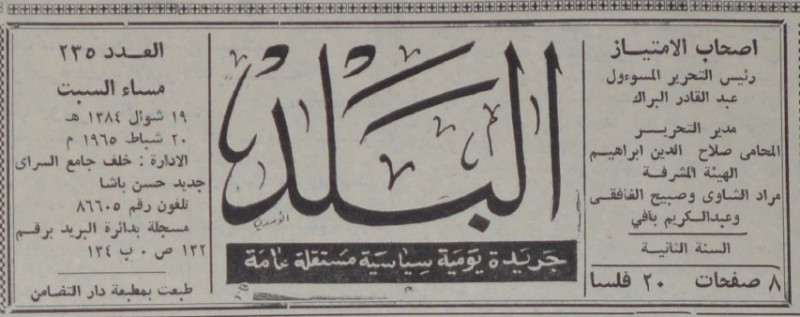 اصحاب الامتياز
رئيس التحرير المسوءول
عبد القادر البراك
مدير التحرير
المحامى صلاح الدين ابراهيم
الهيئة المشرفة
مراد الشاوى وصبيح الغافقى
وعبدالكريم بافي
السنة الثانية
٨ صفحات ٢٠ فلسا
البلد
جريدة يومية سياسية مستقلة عامة
العدد ٢٣٥
مساء السبت
١٩ شوال ١٣٨٤ هـ
٢٠ شباط ١٩٦٥ م
الادارة : خلف جامع السراى
جديد حسن باشا
تلفون رقم ٨٦٦٠٥
مسجلة بدائرة البريد برقم
١٢٢ ص ٠ ب ١٣٤
طبعت بمطبعة دار التضامن